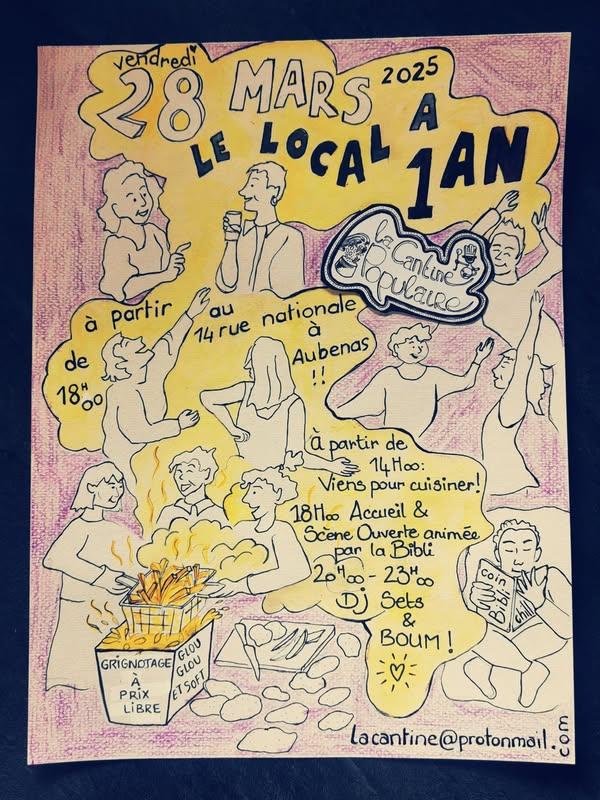 vendredi
28 MARS 2025
LE LOCAL A
1 AN
La Cantine
Populaire
à partir
de
18H00
au
14 rue nationale
à
Aubenas
!!
à partir de
14H00:
Viens pour cuisiner!
18H00 Accueil &
Scène Ouverte animée
par la Bibli
20H00 - 23H00
Dj Sets
&
BOUM!
Coin
Bibli
chill
GRIGNOTAGE
À
PRIX
LIBRE
GLOU
GLOU
ET SOFT
lacantine@protonmail.com